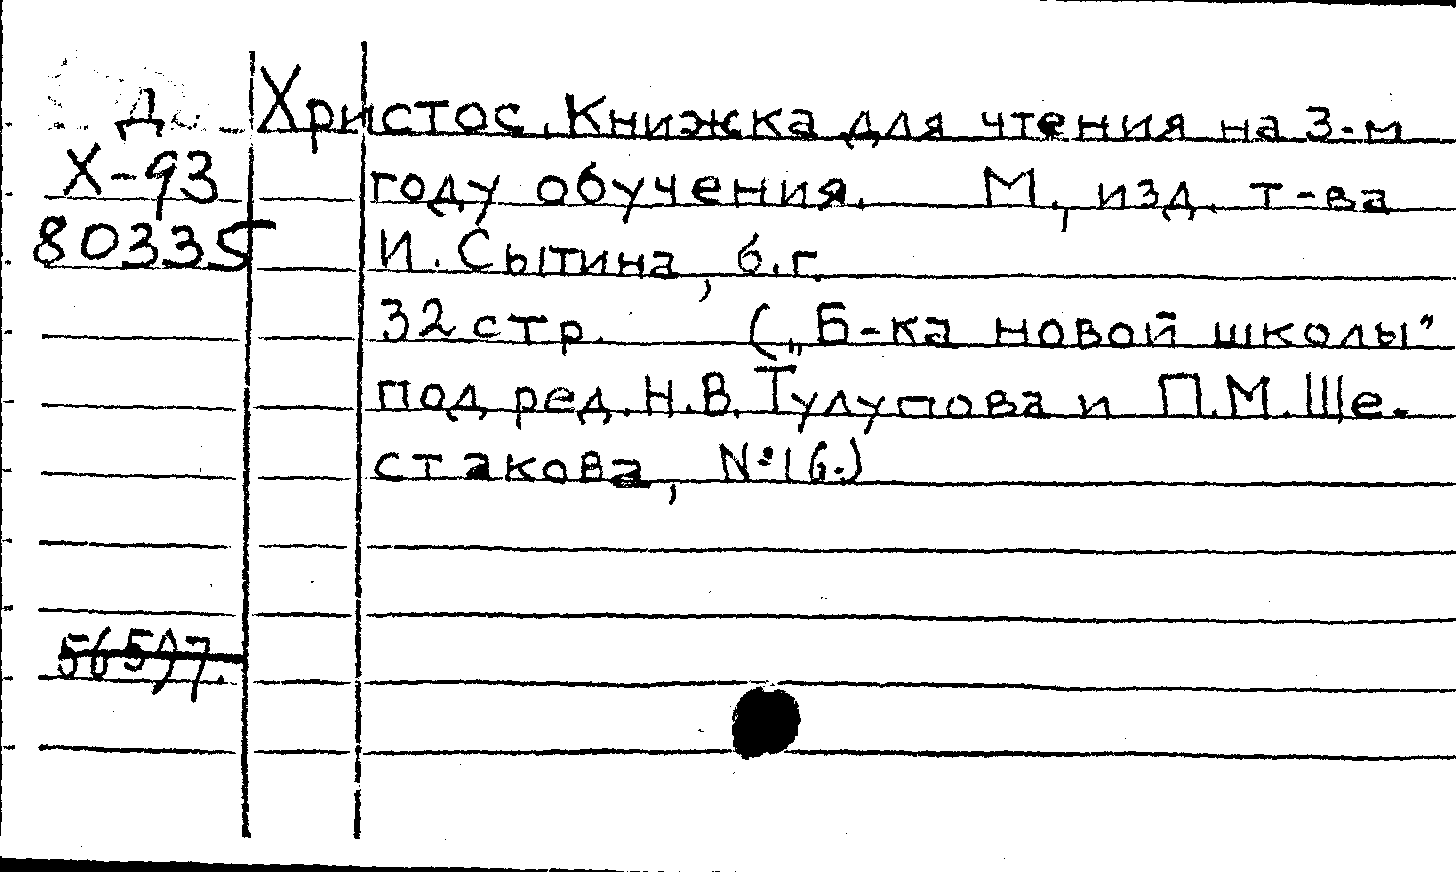 Д
Х-93
80335
Христос. Книжка для чтения на 3-м
году обучения. М., изд. т-ва
И. Сытина, б.г.
32 стр. („Б-ка новой школы”
под ред. Н.В. Тулупова и П.М. Ше-
стакова, №16.)
56597.